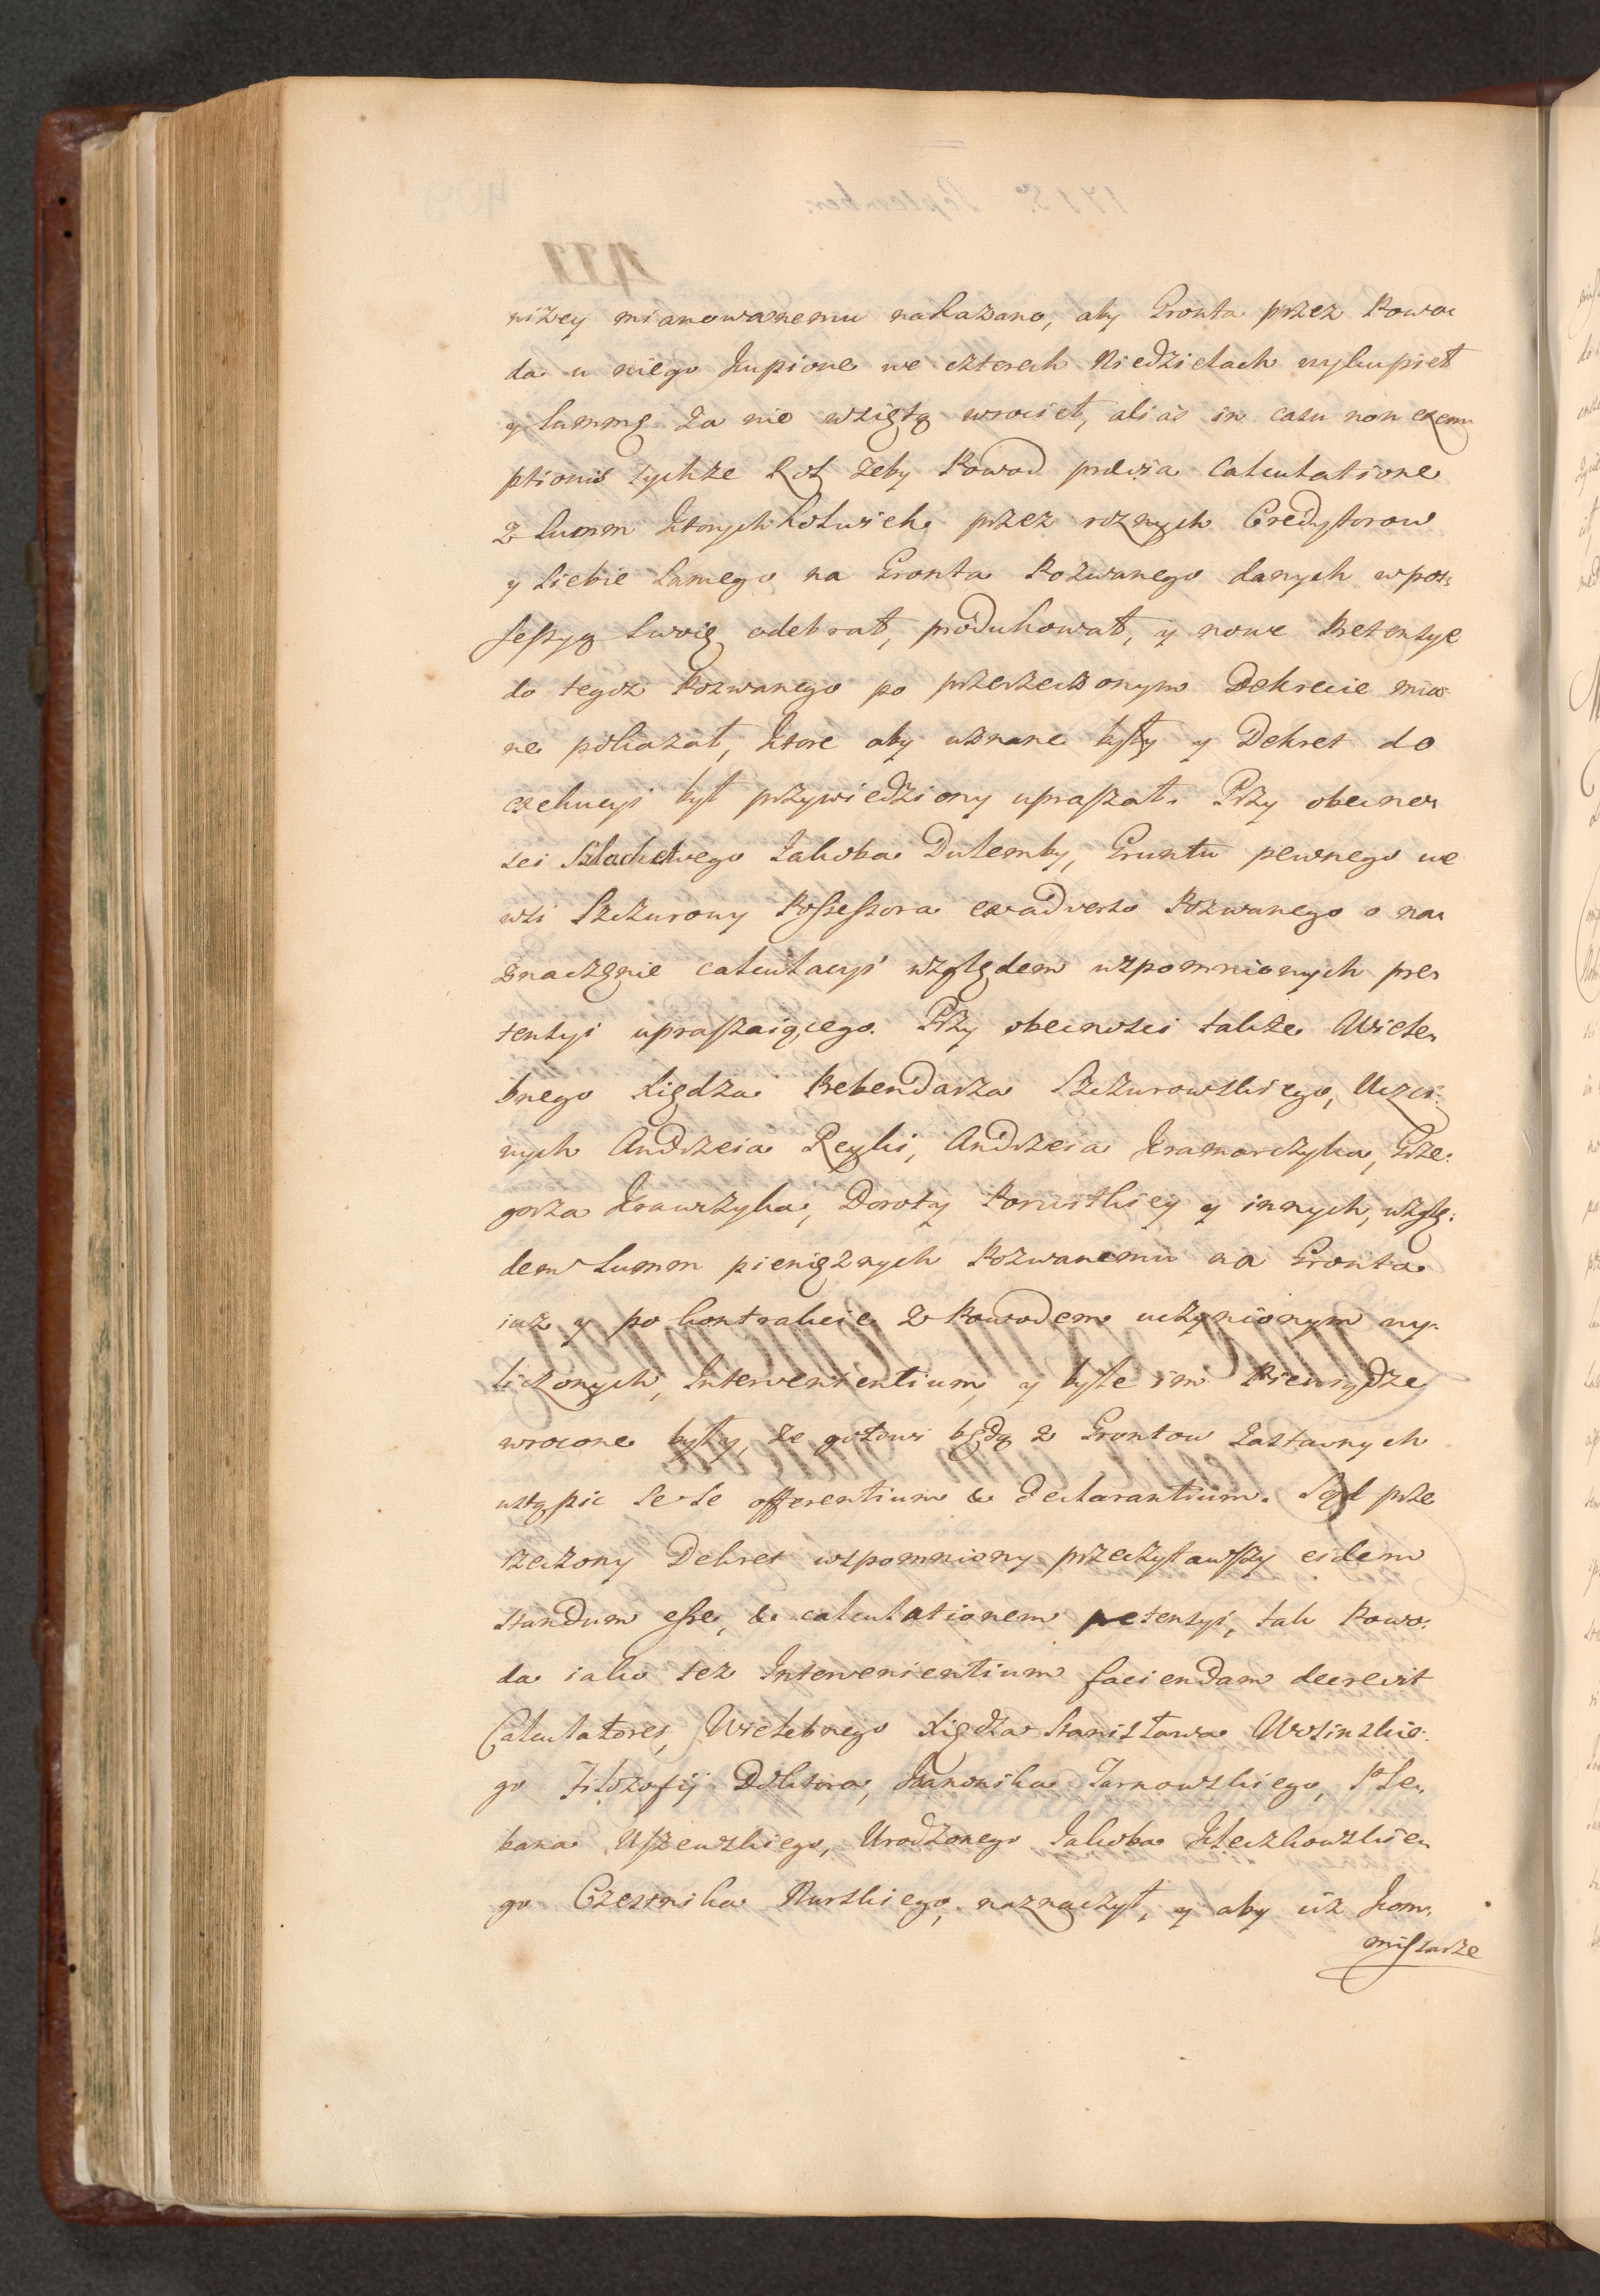 niżey mianowanemu nakazano, aby Gronta przez Powo-
da u niego kupione we czterech Niedzielach wykupieł
y Summę za nie wziętą wrocieł, alias in casu non exem-
ptionis tychże Rol żeby Powod prævia Calculatione
z Summ ktorychkolwiek przez roznych Credytorow
y Siebie Samego na Gronta Pozwanego danych w pos-
sessyą Swoię odebrał, produkował, y nowe Pretensye
do tegoż Pozwanego po przerzeczonym Dekrecie mia-
ne pokazał, ktore aby uznane były y Dekret do
exekucyi był przywiedziony upraszał. Przy obecno-
sci Szlachetnego Jakoba Dulemby, Gruntu pewnego we
wsi Szczurowy Possessora exadverso Pozwanego o na-
znaczenie calculacyi względem wspomnionych pre-
tensyi upraszaiącego. Przy obecności także Wiele-
bnego Xiędza Prebendarza Szczurowskiego, Uczci-
wych Andrzeia Reyki, Andrzeia Kramarczyka, Grze-
gorza Krawczyka, Doroty y innych, wzglę-
dem Summ pieniężnych Pozwanemu na Gronta
iuż y po kontrakcie z Powodem uczynionym wy-
liczonych, Intervenientium, y byle im Pieniądze
wrocone były, że gotowi będą z Grontow Zastawnych
ustąpic Se Se offerentium & declarantium. Sąd prze-
rzeczony Dekret wspomniony przeczytawszy eidem
standum esse, & calculationem pretensyi, tak Powo-
da iako też Intervenientium faciendam decrevit
Calculatores, Wielebnego Xiędza Stanisława Wosinskie-
go Filozofij Doktora, Kanonika Tarnowskiego, Ple-
bana Uszewskiego, Urodzonego Jakoba Kleczkowskie-
go Czesnika Nurskiego, naznaczył, y aby ciż Kom-
missarze